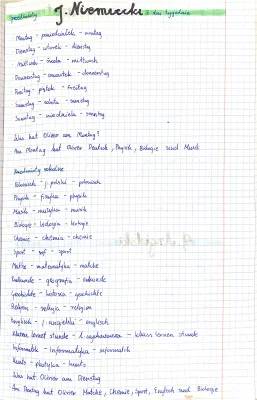 przedmioty J. Niemiecki i dni tygodnia
Montag - poniedziałek - montag
Dienstag - wtorek - dinstag
Mittwoch - środa - mittwoch
Donnerstag - czwartek - donnerstag
Freitag - piątek - freitag
Samstag - sobota - samstag
Sonntag - niedziela - sonntag
Was hat Oliver am Montag?
Am Montag hat Oliver Deutsch, Physik, Biologie und Musik
Przedmioty szkolne
Polnisch - j. polski - polnisch
Physik - fizyka - physik
Musik - muzyka - musik
Biologie - biologia - biologie
Chemie - chemia - chemie
Sport - wf - sport
Mathe - matematyka - matche
Erdkunde - geografia - erdkunde
Geschichte - historia - geschichte
Religion - religia - religion
Englisch - j. angielski - englisch
stunde - l. wychowawcza - stunde
Informatik - informatyka - informatik
Kunst - plastyka - kunst
Was hat Oliver am Dienstag
Am Dienstag hat Oliver Matche, Chemie, Sport, Englisch und Biologie